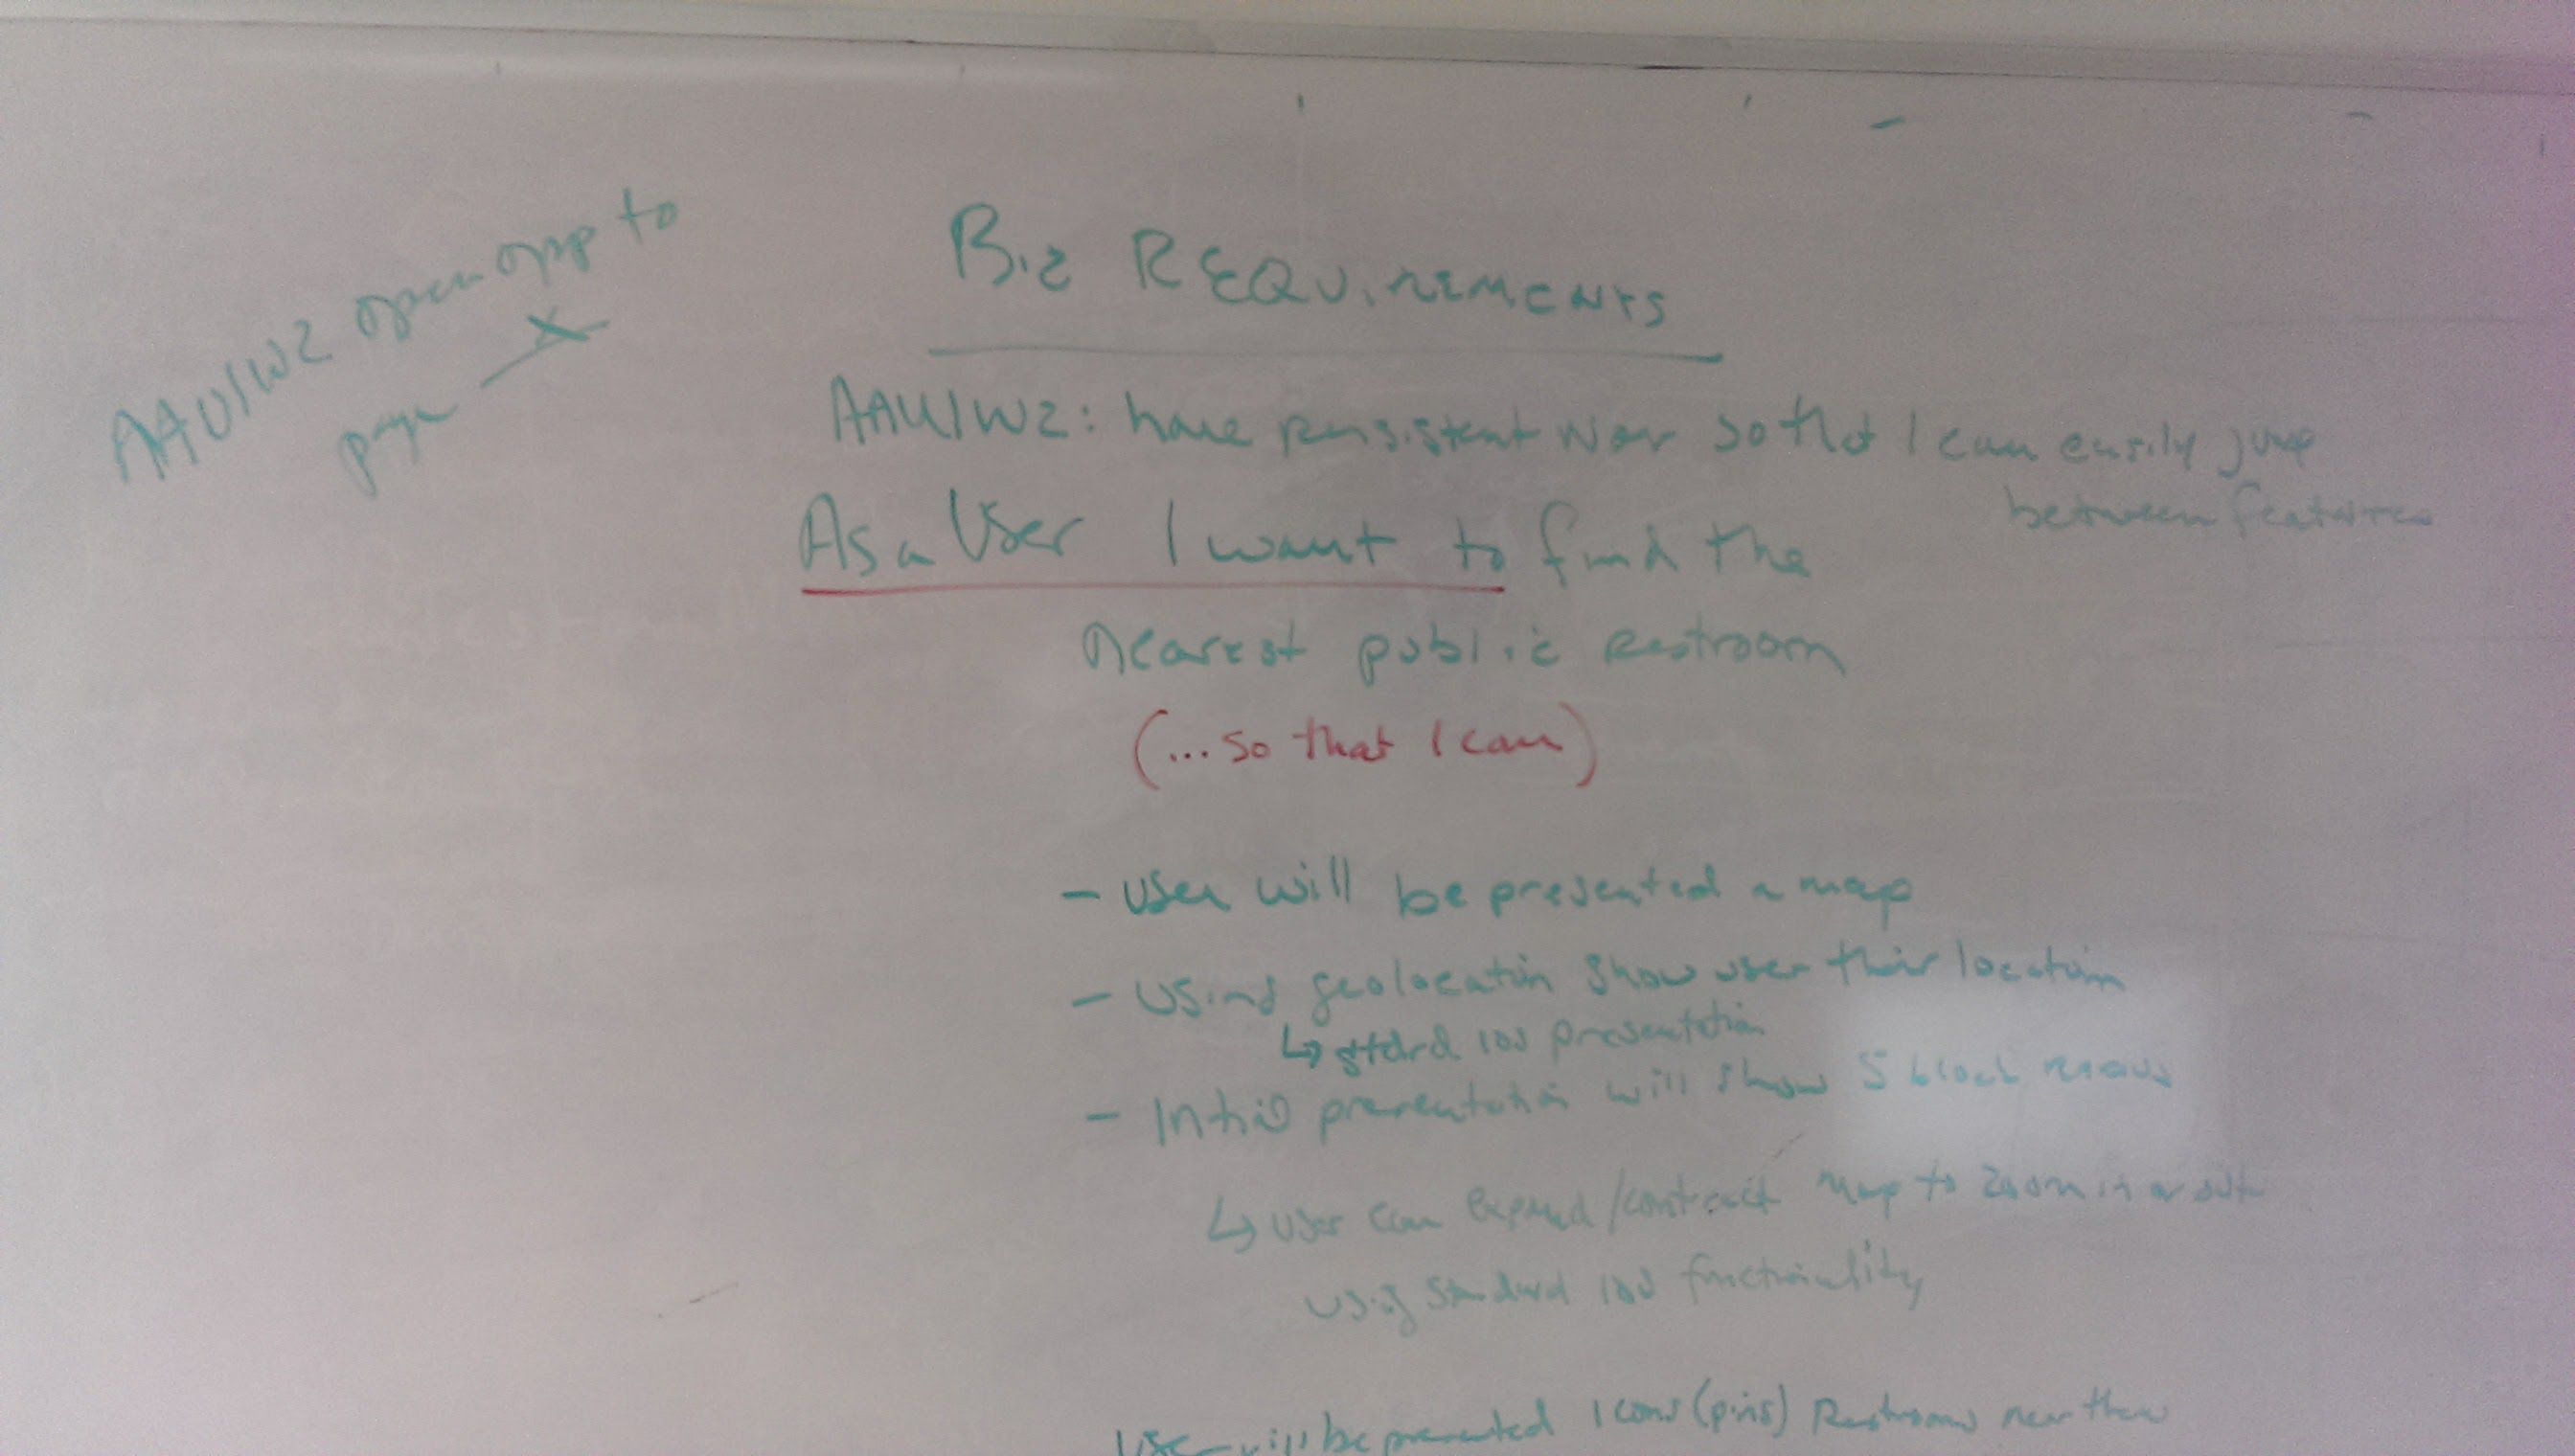 AAU/W2 open app to
page X
Biz REQUIREMENTS
AAU/W2: have persistent Nav so that I can easily jump
between features
As a User I want to find the
nearest public restroom
(... so that I can)
- User will be presented a map
- Using geolocation show user their location
↳ stdrd ios presentation
- Initial presentation will show 5 block radius
↳ user can expand/contract map to zoom in or out
using standard ios functionality
User will be presented Icons (pins) Restrooms near them